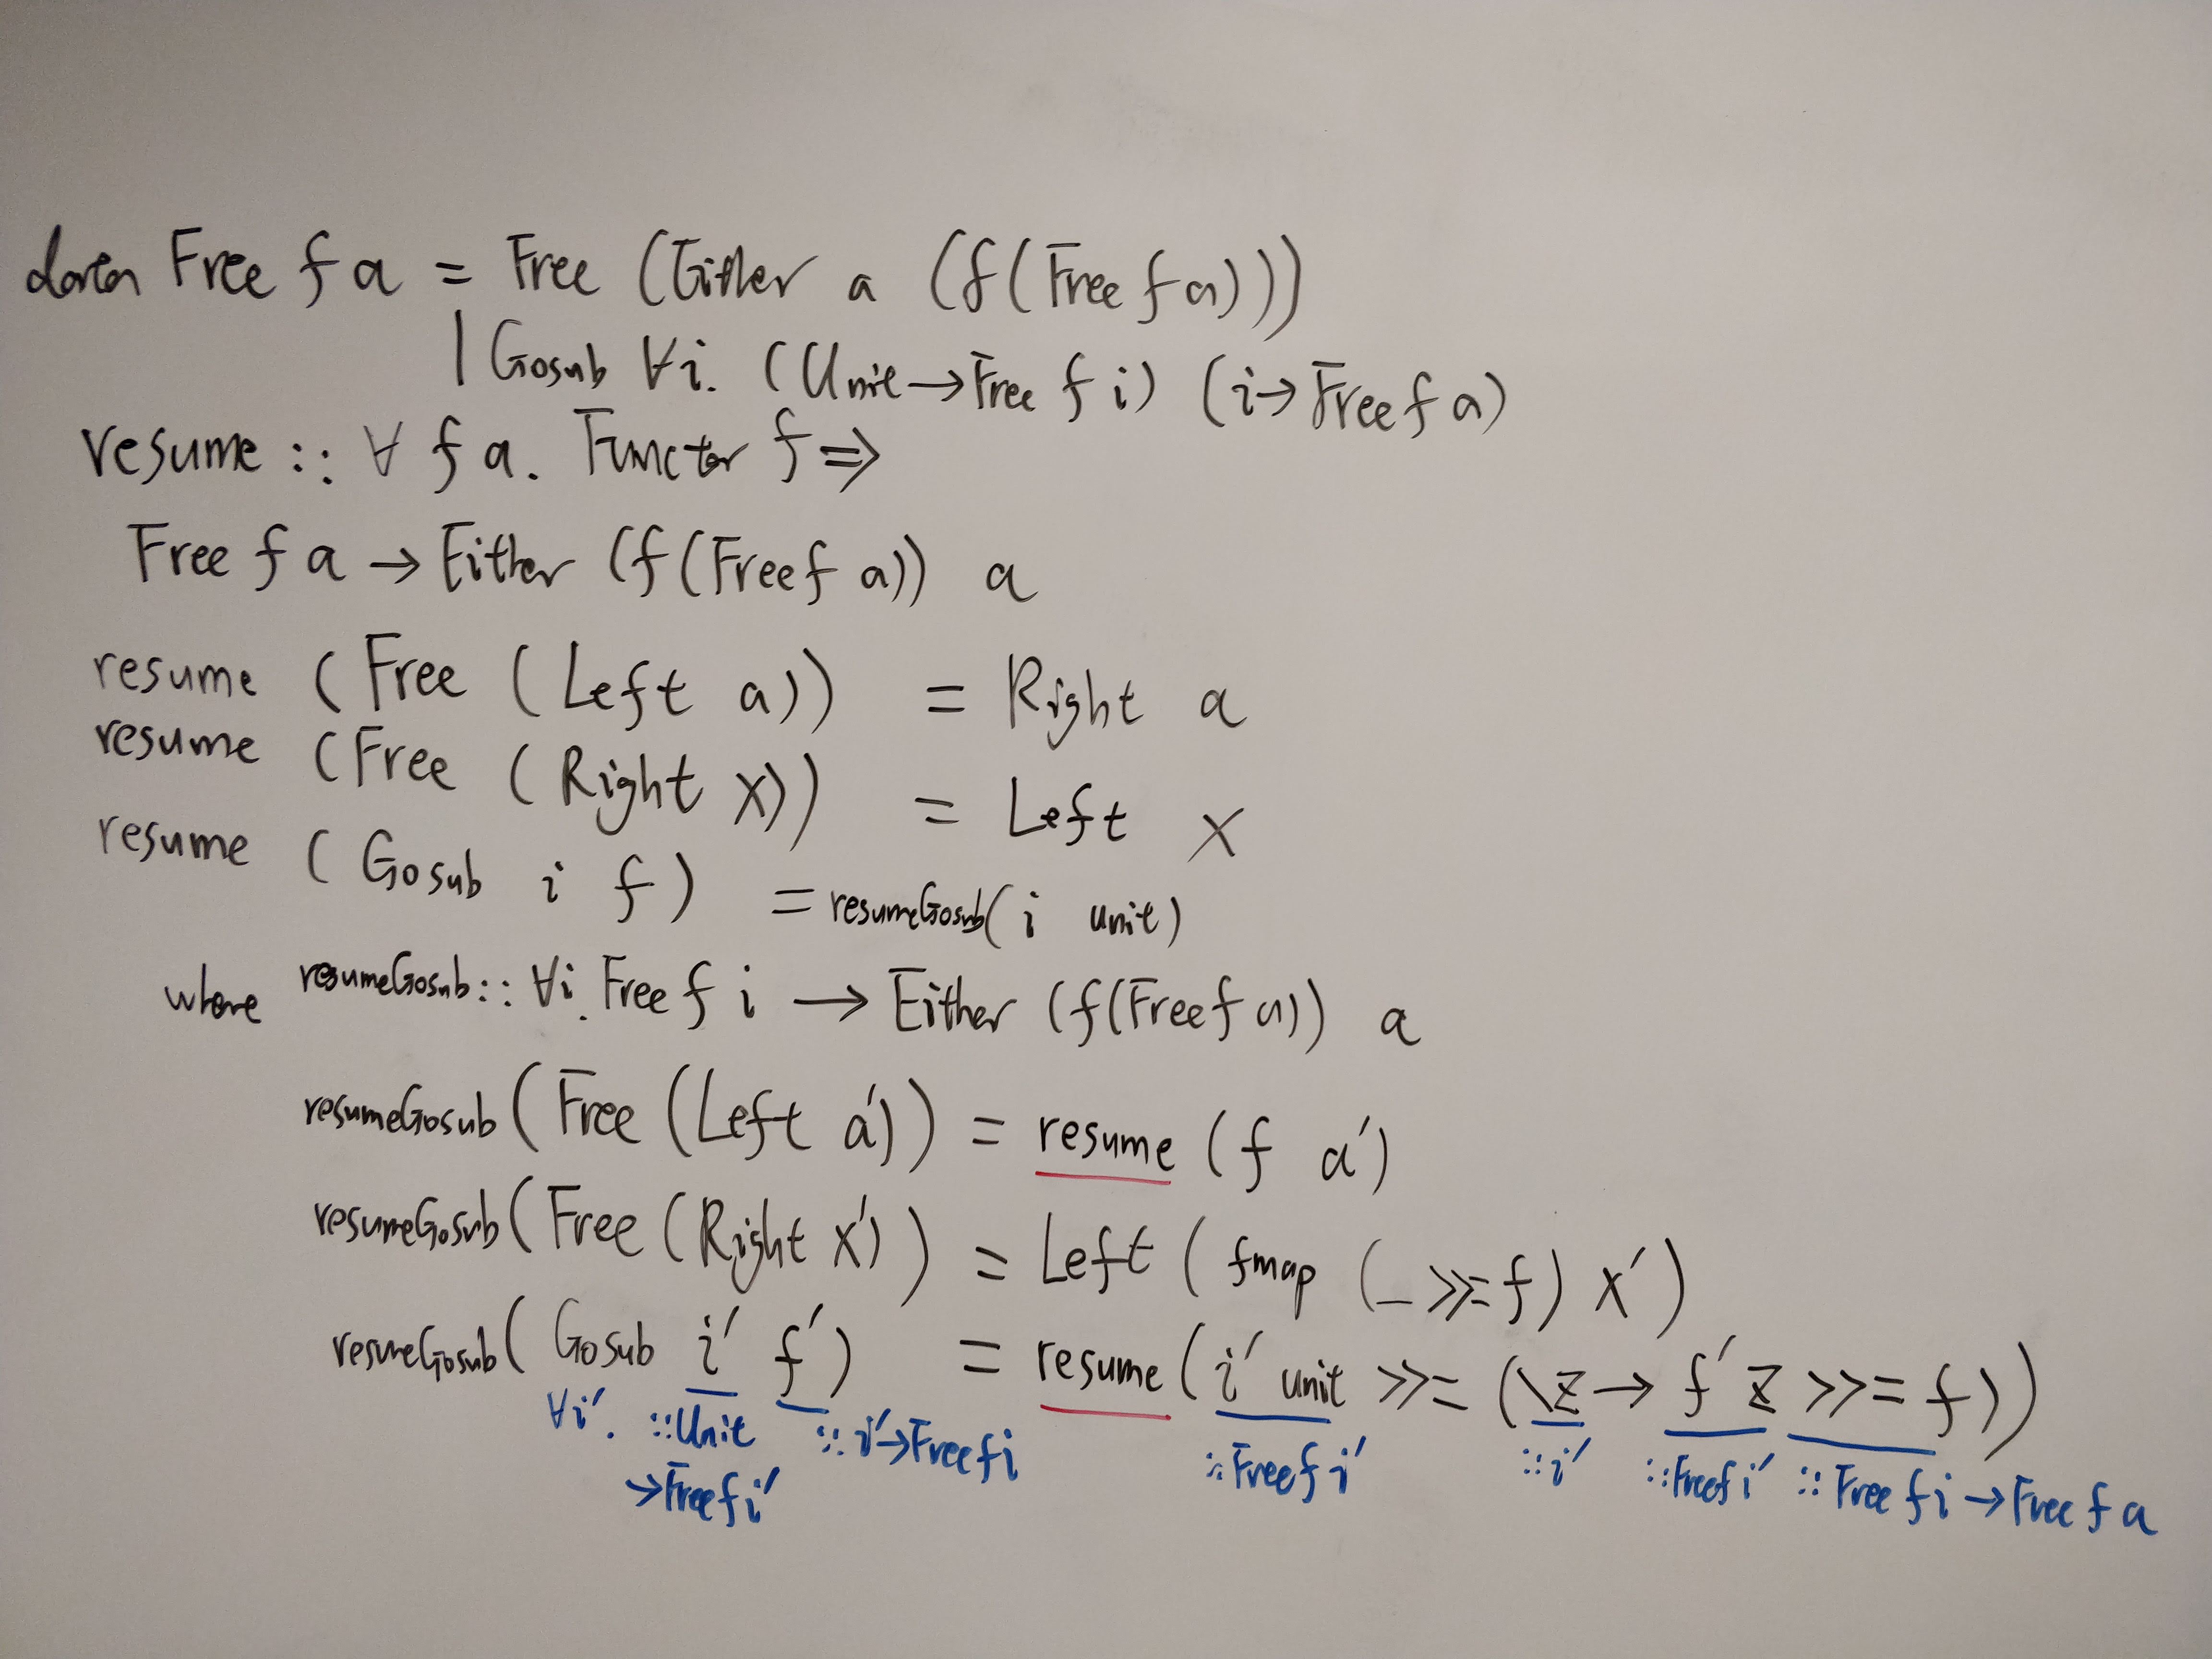 data Free f a = Free (Either a (f (Free f a)))
| Gosub ∀i. (Unit → Free f i) (i → Free f a)
resume :: ∀ f a. Functor f ⇒
Free f a → Either (f (Free f a)) a
resume (Free (Left a)) = Right a
resume (Free (Right x)) = Left x
resume (Gosub i f) = resumeGosub (i unit)
where resumeGosub :: ∀i. Free f i → Either (f (Free f a)) a
resumeGosub (Free (Left a')) = resume (f a')
resumeGosub (Free (Right x')) = Left (fmap (_ >>= f) x')
resumeGosub (Gosub i' f') = resume (i' unit >>= (\z → f' z >>= f))
∀i'. :: Unit :: i' → Free f i :: Free f i' :: i' :: Free f i' :: Free f i → Free f a
→ Free f i'